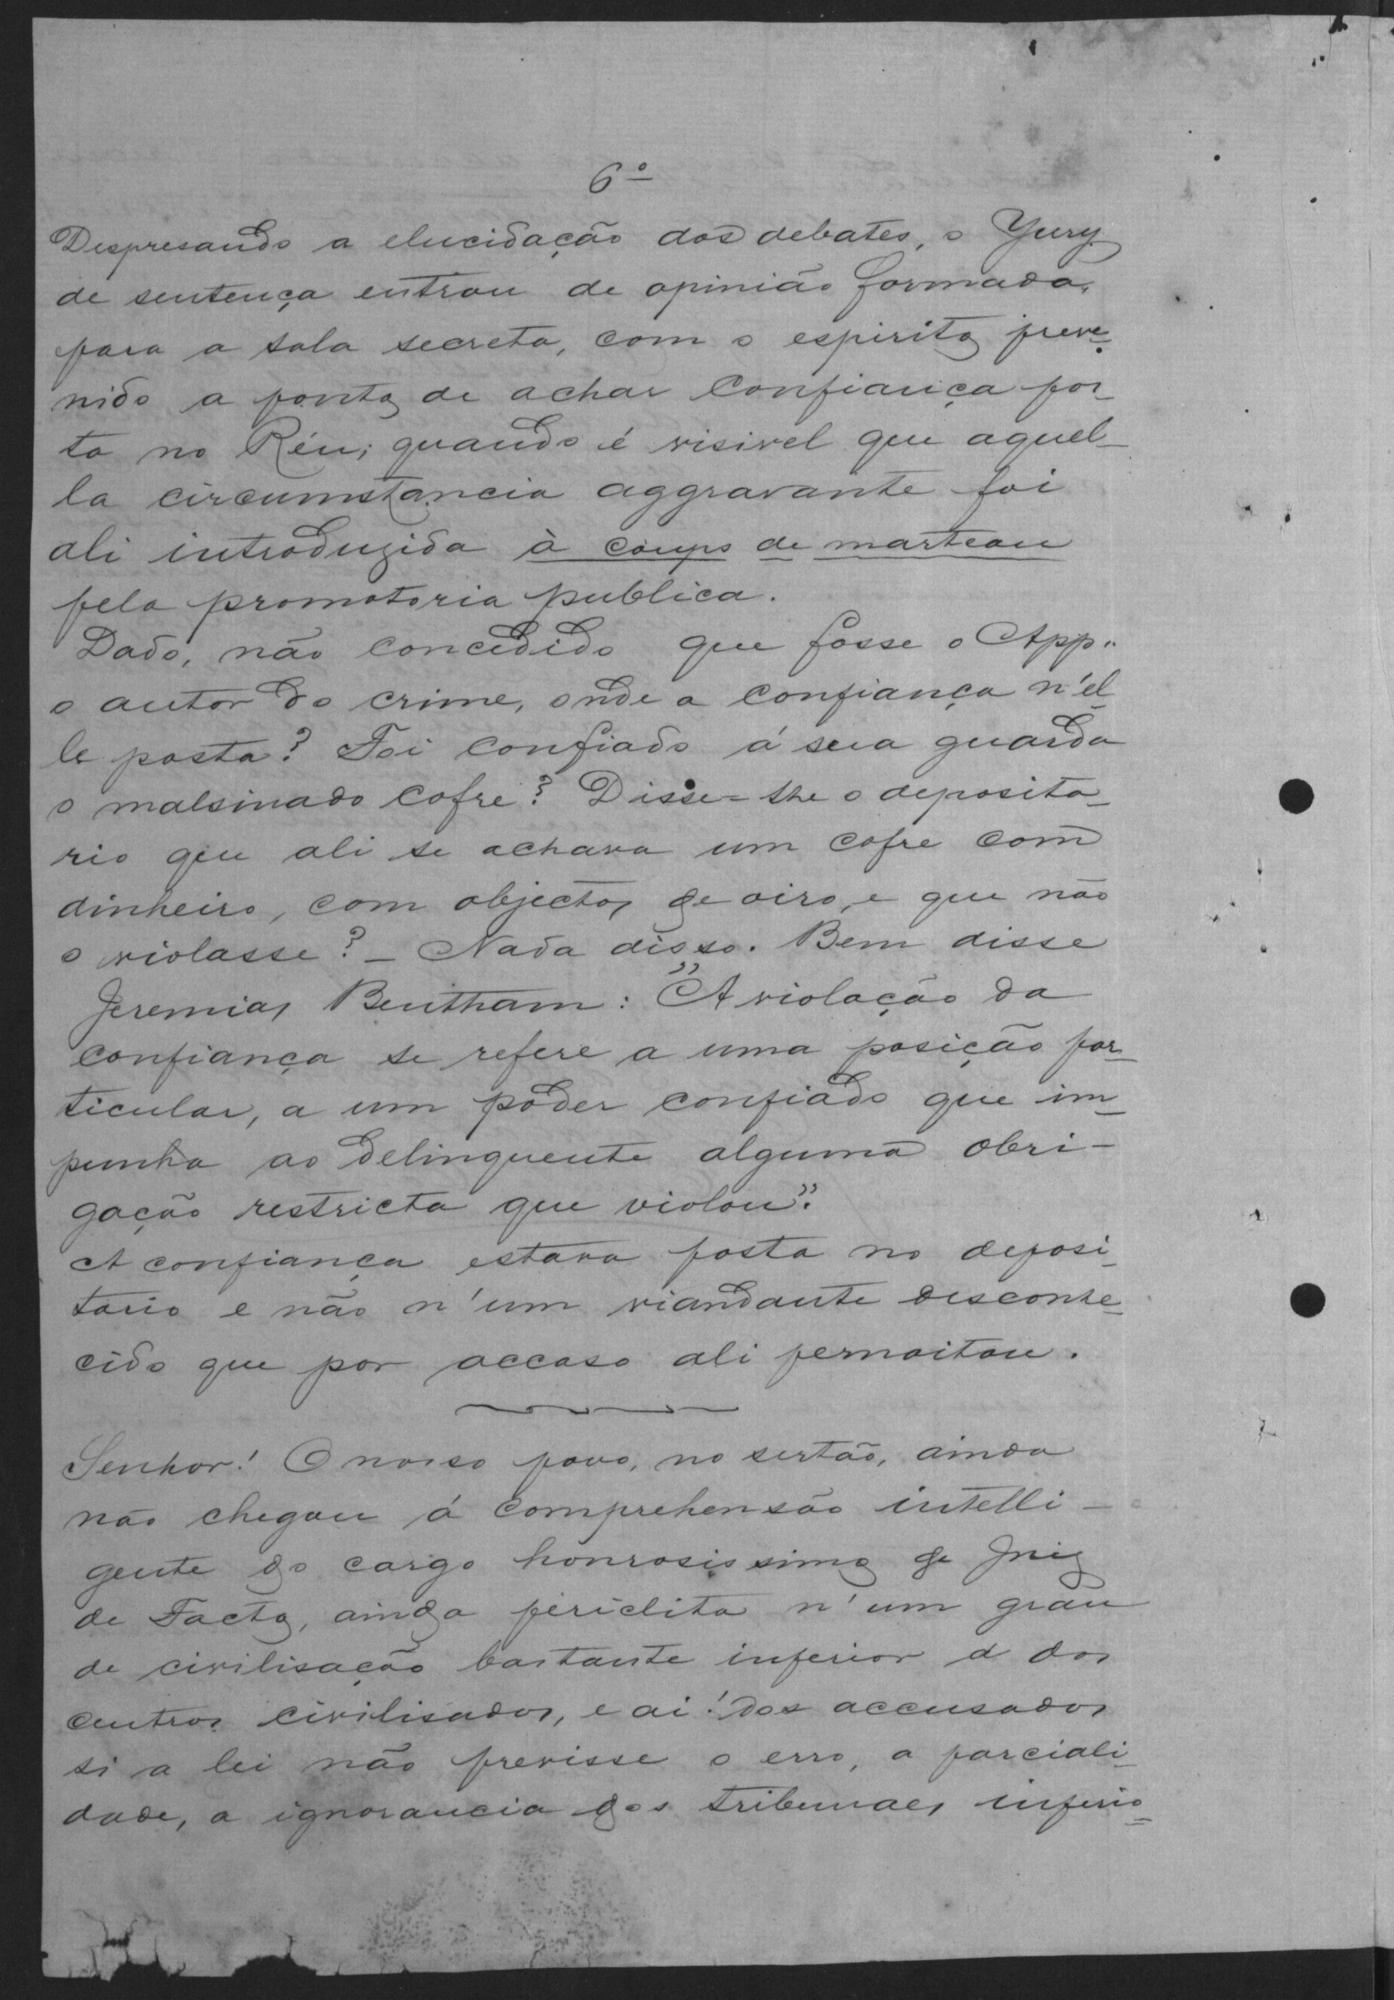 6º
Despresando a elucidação dos debates, o Jury
de sentença entrou de opinião formada,
para a sala secreta, com o espirito preve-
nido a ponto de achar confiança pos-
ta no Réu; quando é visivel que aquel-
la circumstancia aggravante foi
ali introduzida à coups de marteau
pela promotoria publica.
Dado, não concedido que fosse o App.
o autor do crime, onde a confiança n'el-
le posta? Foi confiado á sua guarda
o malsinado cofre? Disse-lhe o deposita-
rio que ali se achava um cofre com
dinheiro, com objectos de oiro, e que não
o violasse? - Nada disso. Bem disse
Jeremias Bentham: "A violação da
confiança se refere a uma posição par-
ticular, a um poder confiado que im-
punha ao delinquente alguma obri-
gação restricta que violou".
A confiança estava posta no deposi-
tario e não n'um viandante desconhe-
cido que por accaso ali pernoitou.
Senhor! O nosso povo, no sertão, ainda
não chegou á comprehensão intelli-
gente do cargo honrosissimo de Juiz
de Facto, ainda periclita n'um grau
de civilisação bastante inferior a dos
centros civilisados, e ai! dos accusados
si a lei não previsse o erro, a parciali-
dade, a ignorancia dos tribunaes inferio-